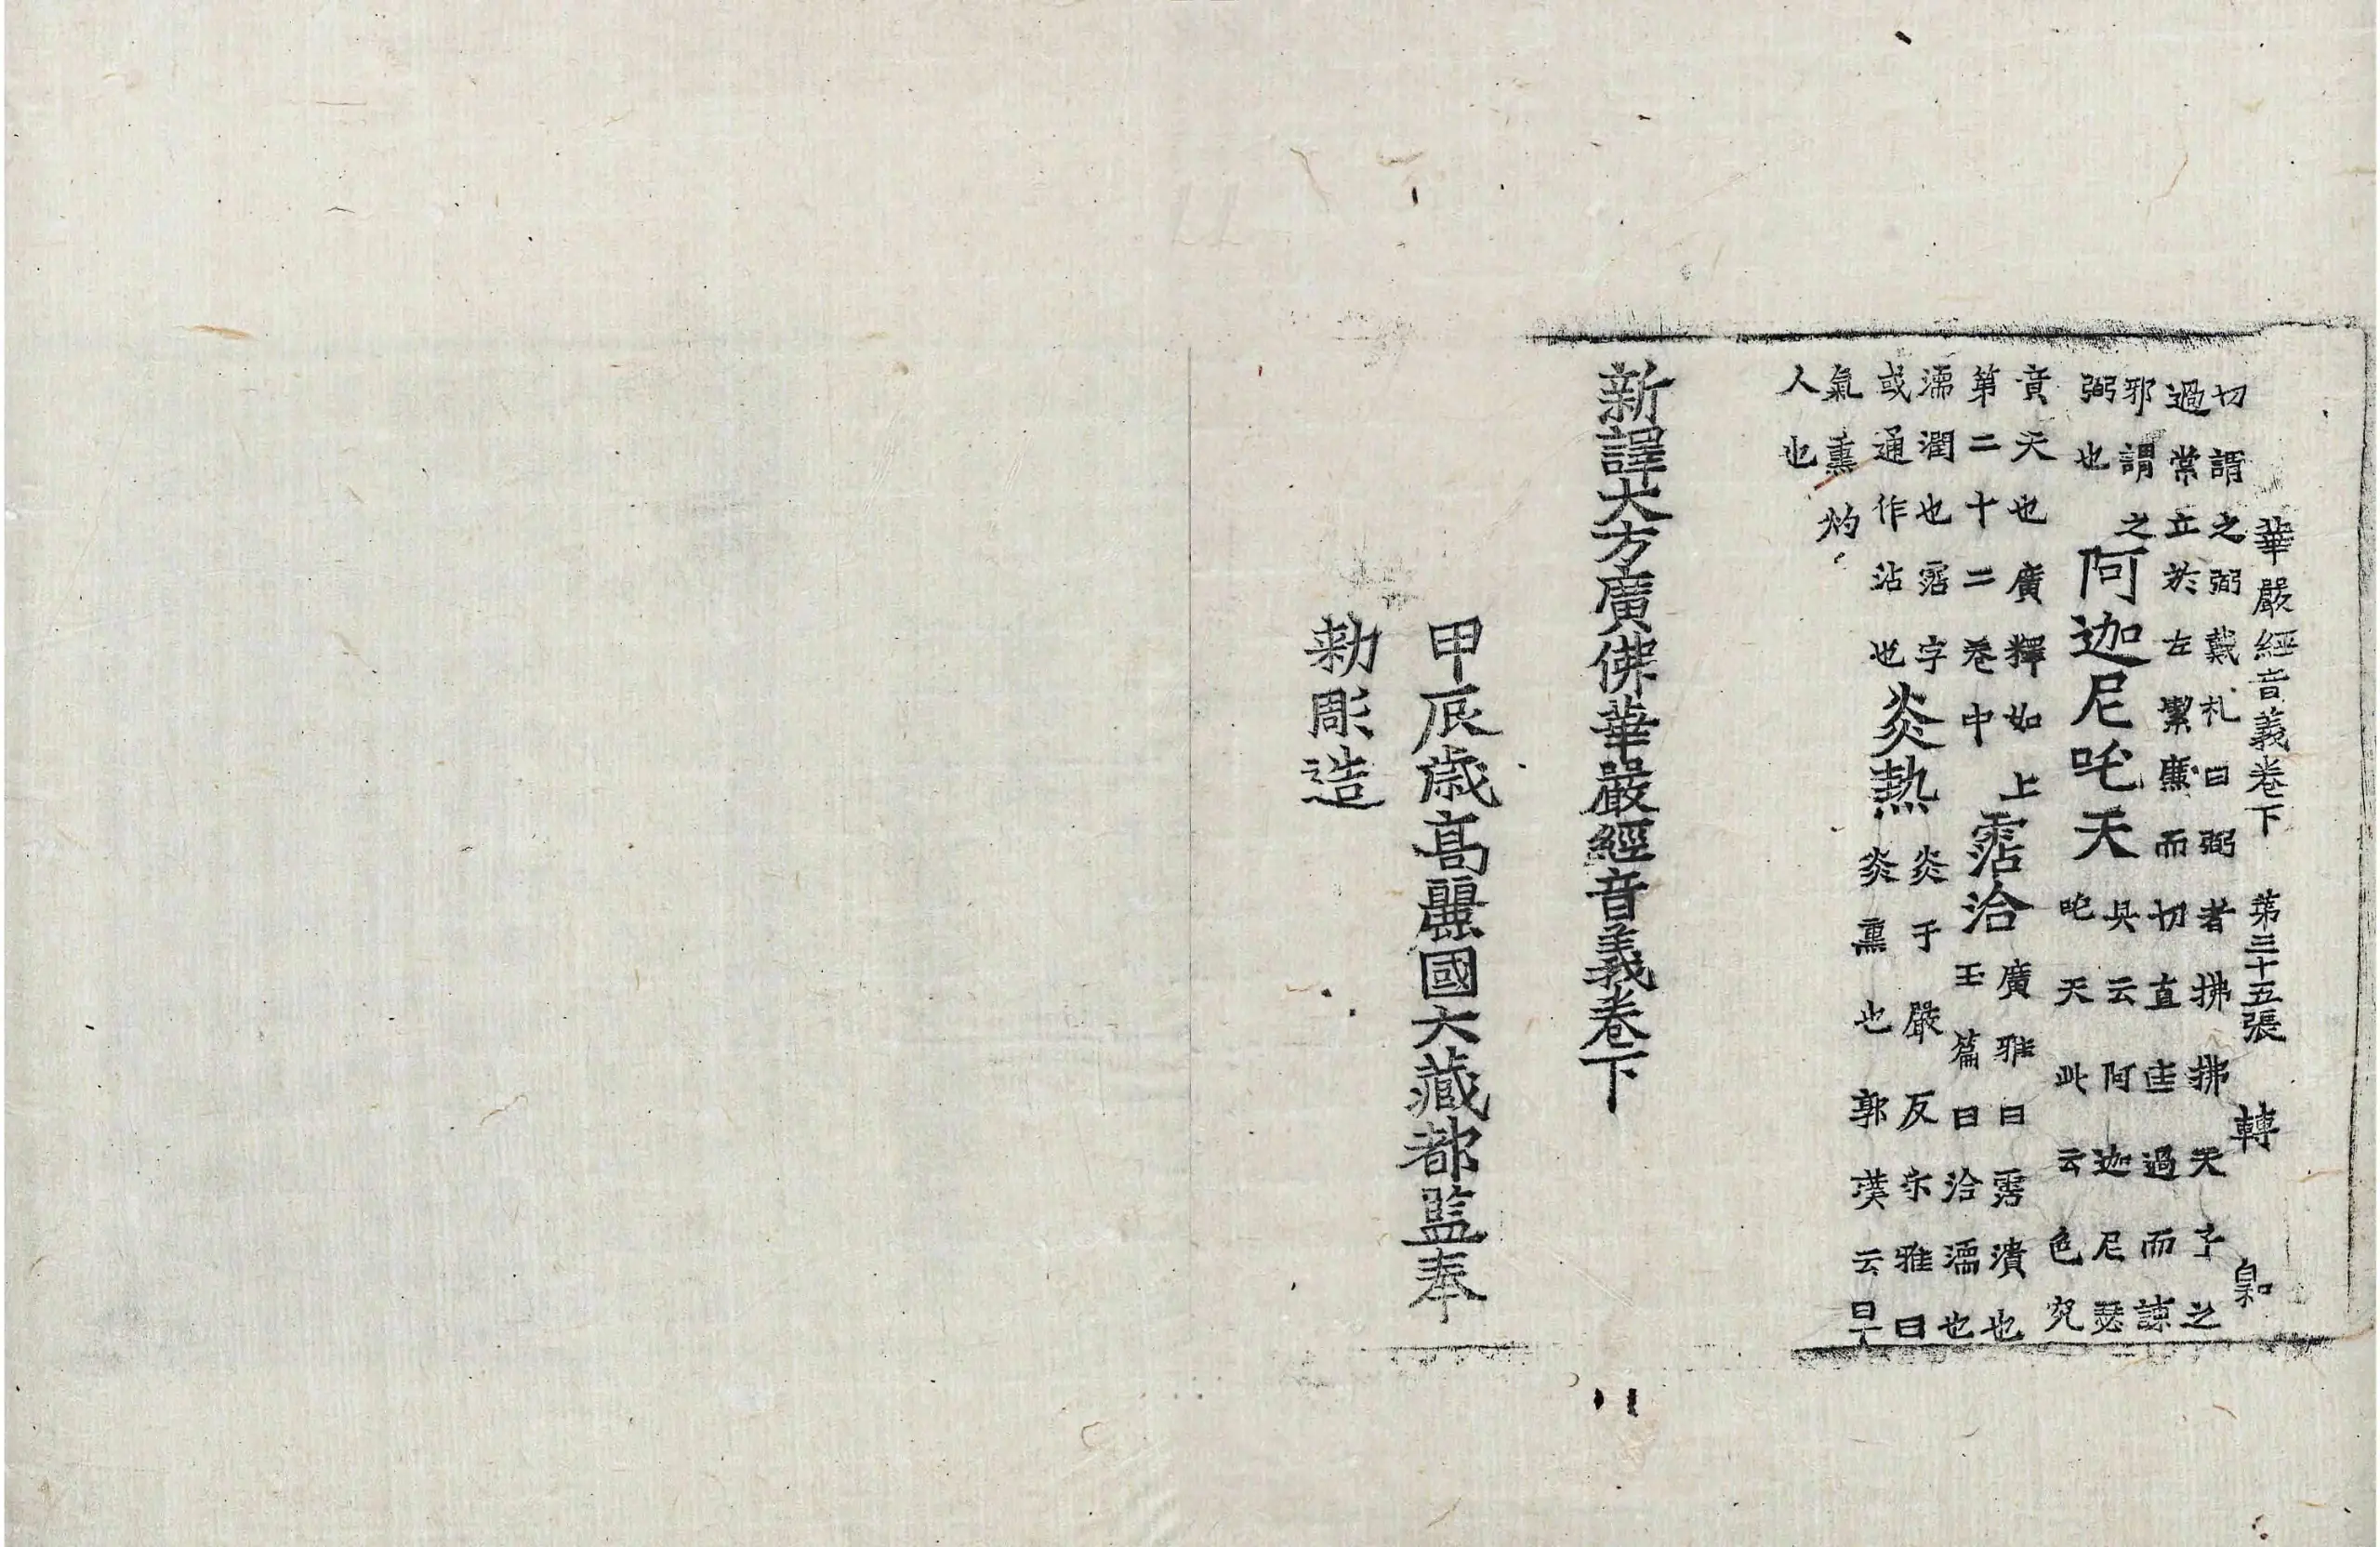 華嚴經音義卷下 第三十五張 轉
切謂之弼戴札曰弼者拂拂天子之
過常立於左絜廉而切直匡過而諫
邪謂之
弼也
阿迦尼吒天
具云阿迦尼瑟
吒天此云色究
竟天也廣釋如上
第二十二卷中
霑洽
廣雅曰霑漬也
玉篇曰洽濡也
濡潤也霑字
或通作沾也
炎熱
炎于嚴反尒雅曰
炎熏也郭璞云旱
氣熏灼
人也
新譯大方廣佛華嚴經音義卷下
甲辰歲高麗國大藏都監奉
勅彫造